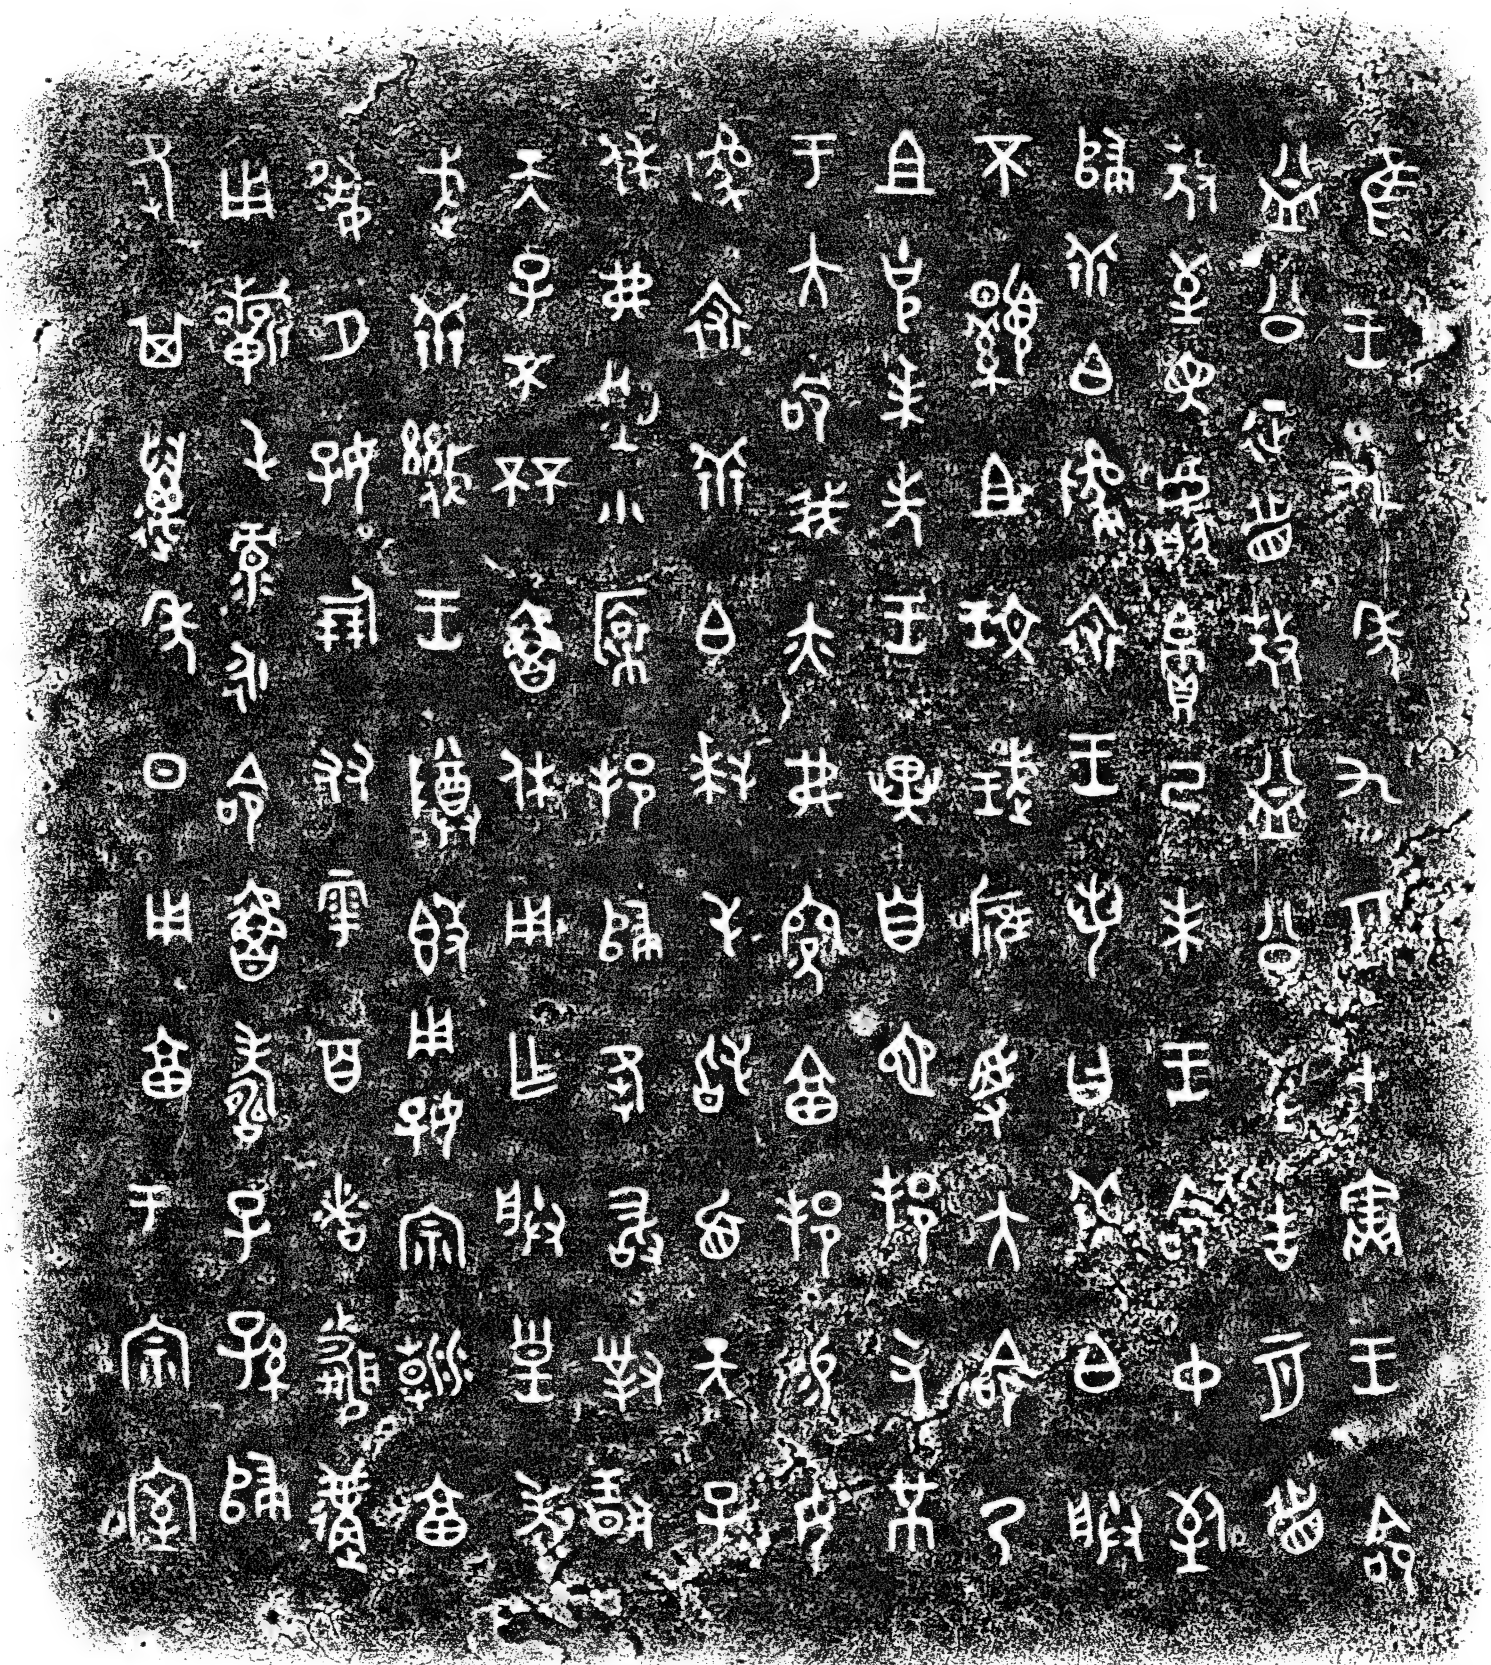 隹王九年九月甲寅王命
益公征眉敖益公至告二月眉
敖至見獻貴己未王命中致
歸乖白貔裘王若曰乖白朕
不顯且玟珷膺受大命乃
且克弼先王異自它邦又芇
于大命我亦弗曠享邦易女
貔裘乖白拜手稽首天子
休弗忘小裔邦歸夆敢對揚
天子不𠀠魯休用乍朕皇考
武乖幾王尊簋用好宗廟享
夙夕好朋友雩百者婚媾
用祈屯彔永命魯壽子孫歸
夆其萬年日用享于宗室